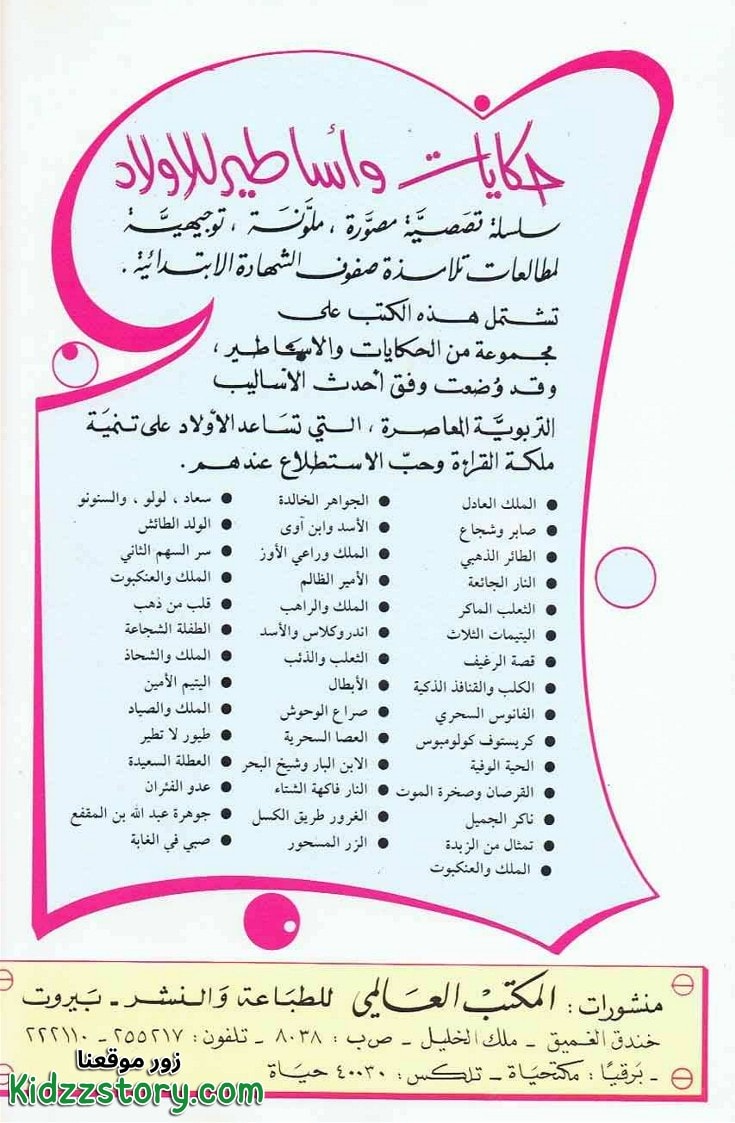 حكايات وأساطير للأولاد
سلسلة قصصيَّة مصوَّرة ، ملوَّنة ، توجيهيَّة
لمطالعات تلامذة صفوف الشهادة الابتدائية .
تشتمل هذه الكتب على
مجموعة من الحكايات والاساطير ،
وقد وُضعت وفق أحدث الأساليب
التربويَّة المعاصرة ، التي تساعد الأولاد على تنمية
ملكة القراءة وحبّ الاستطلاع عندهم .
● الملك العادل
● صابر وشجاع
● الطائر الذهبي
● النار الجائعة
● الثعلب الماكر
● اليتيمات الثلاث
● قصة الرغيف
● الكلب والقنافذ الذكية
● الفانوس السحري
● كريستوف كولومبوس
● الحية الوفية
● القرصان وصخرة الموت
● ناكر الجميل
● تمثال من الزبدة
● الملك والعنكبوت
● الجواهر الخالدة
● الأسد وابن آوى
● الملك وراعي الأوز
● الأمير الظالم
● الملك والراهب
● اندروكلاس والأسد
● الثعلب والذئب
● الأبطال
● صراع الوحوش
● العصا السحرية
● الابن البار وشيخ البحر
● النار فاكهة الشتاء
● الغرور طريق الكسل
● الزر المسحور
● سعاد ، لولو ، والسنونو
● الولد الطائش
● سر السهم الثاني
● الملك والعنكبوت
● قلب من ذهب
● الطفلة الشجاعة
● الملك والشحاذ
● اليتيم الأمين
● الملك والصياد
● طيور لا تطير
● العطلة السعيدة
● عدو الفئران
● جوهرة عبد الله بن المقفع
● صبي في الغابة
منشورات : المكتب العالمي للطباعة والنشر - بيروت
خندق الغميق - ملك الخليل - ص ب : ٨٠٣٨ - تلفون : ٢٥٥٢١٧ - ٢٢٢١١٠
- برقيًا : مكتحياة - تلكس : ٤٠٠٣٠ حياة
زور موقعنا
Kidzzstory.com